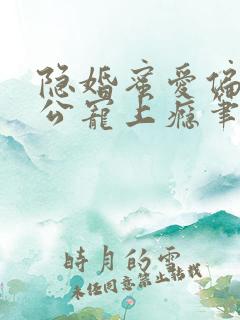 隐婚蜜爱偏
公宠上瘾笔
時月的雲
未经同意禁止转载